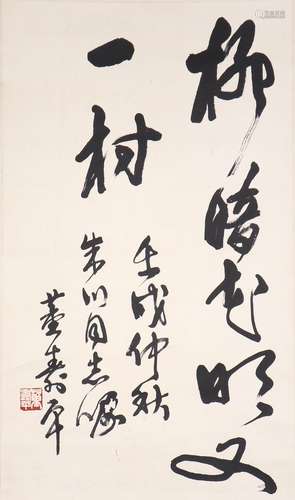 柳暗花明又
一村
壬戌仲秋
朱川同志嘱
董寿平